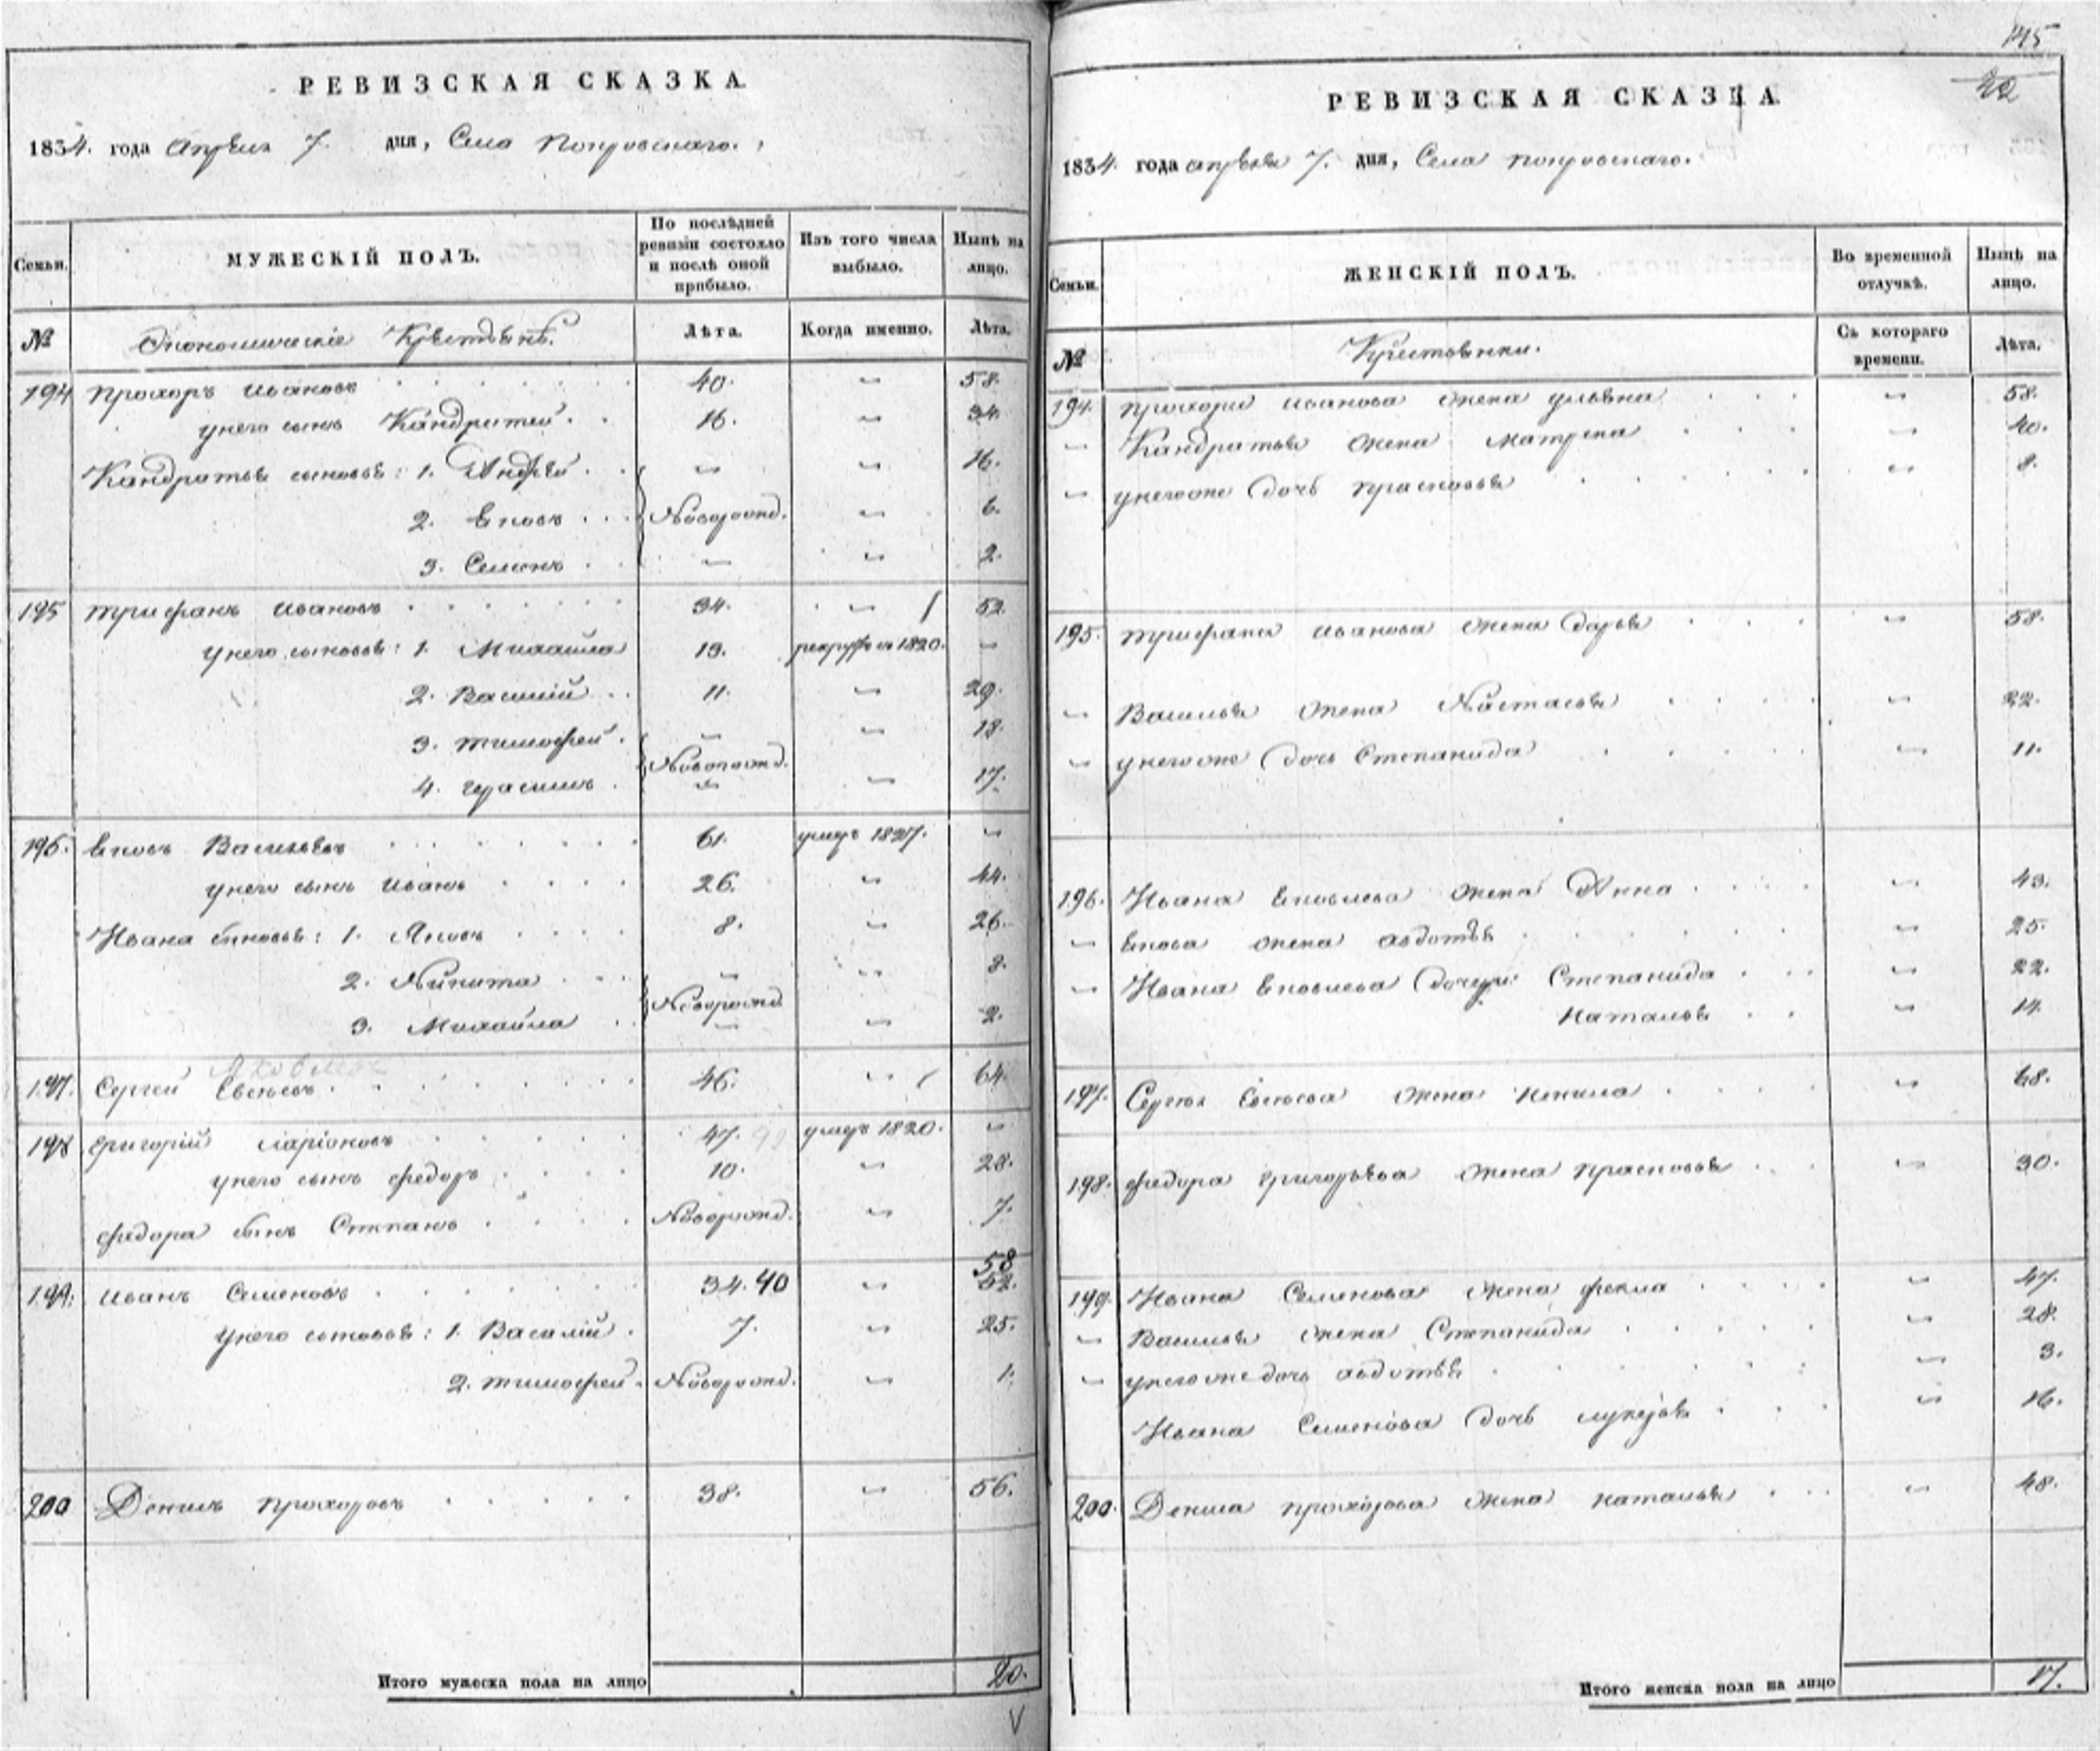 РЕВИЗСКАЯ СКАЗКА.
1834. года Апреля 7. дня, Села Покровскаго.
Семьи.
МУЖЕСКІЙ ПОЛЪ.
По послѣдней ревизіи состояло и послѣ оной прибыло.
Изъ того числа выбыло.
Нынѣ на лицо.
№
Экономическіе Крестьянѣ.
Лѣта.
Когда именно.
Лѣта.
194 Прохоръ Ивановъ 40. 58.
унего сынъ Кандратей. 16. 34.
Кандратья сыновья: 1. Андрей 16.
2. Яковъ Новорожд. 6.
3. Семенъ 2.
195 Трифанъ Ивановъ 34. 52.
унего сыновья: 1. Михайла 13. рекрут. въ 1820.
2. Василій 11. 29.
3. Тимофей 18.
Новорожд.
4. Герасимъ 17.
196. Яковъ Васильевъ 61. умеръ 1827.
унего сынъ Иванъ 26. 44.
Ивана сыновья: 1. Яковъ 8. 26.
2. Никита 8.
Новорожд.
3. Михайла 2.
Яковлевъ
197. Сергей Евсѣевъ 46. 64.
198 Григорій Ларіоновъ 47. умеръ 1820.
унего сынъ Федоръ 10. 28.
Федора сынъ Степанъ Новорожд. 7.
58
199. Иванъ Семеновъ 34. 40 52.
унего сыновья: 1. Василій 7. 25.
2. Тимофей. Новорожд. 1.
200 Денисъ Прохоровъ 38. 56.
Итого мужеска пола на лицо 20.
145
РЕВИЗСКАЯ СКАЗКА
1834. года апреля 7. дня, Села Покровскаго.
Семьи.
ЖЕНСКІЙ ПОЛЪ.
Во временной отлучкѣ.
Нынѣ на лицо.
№
Крестьянки.
Съ котораго времени.
Лѣта.
194. Прохора Иванова жена Ульяна 58.
Кандратья жена Матрена 40.
унегоже дочь Прасковья 8.
195. Трифана Иванова жена Дарья 58.
Василья жена Настасья 22.
унегоже дочь Степанида 11.
196. Ивана Яковлева жена Анна 43.
Якова жена Авдотья 25.
Ивана Яковлева дочери Степанида 22.
Наталья 14.
197. Сергея Евсѣева жена Ненила 68.
198. Федора Григорьева жена Прасковья 30.
199. Ивана Семенова жена Фекла 47.
Василья жена Степанида 28.
унегоже дочь Авдотья 3.
Ивана Семенова дочь Лукерья 16.
200. Дениса Прохорова жена Наталья 48.
Итого женска пола на лицо 17.